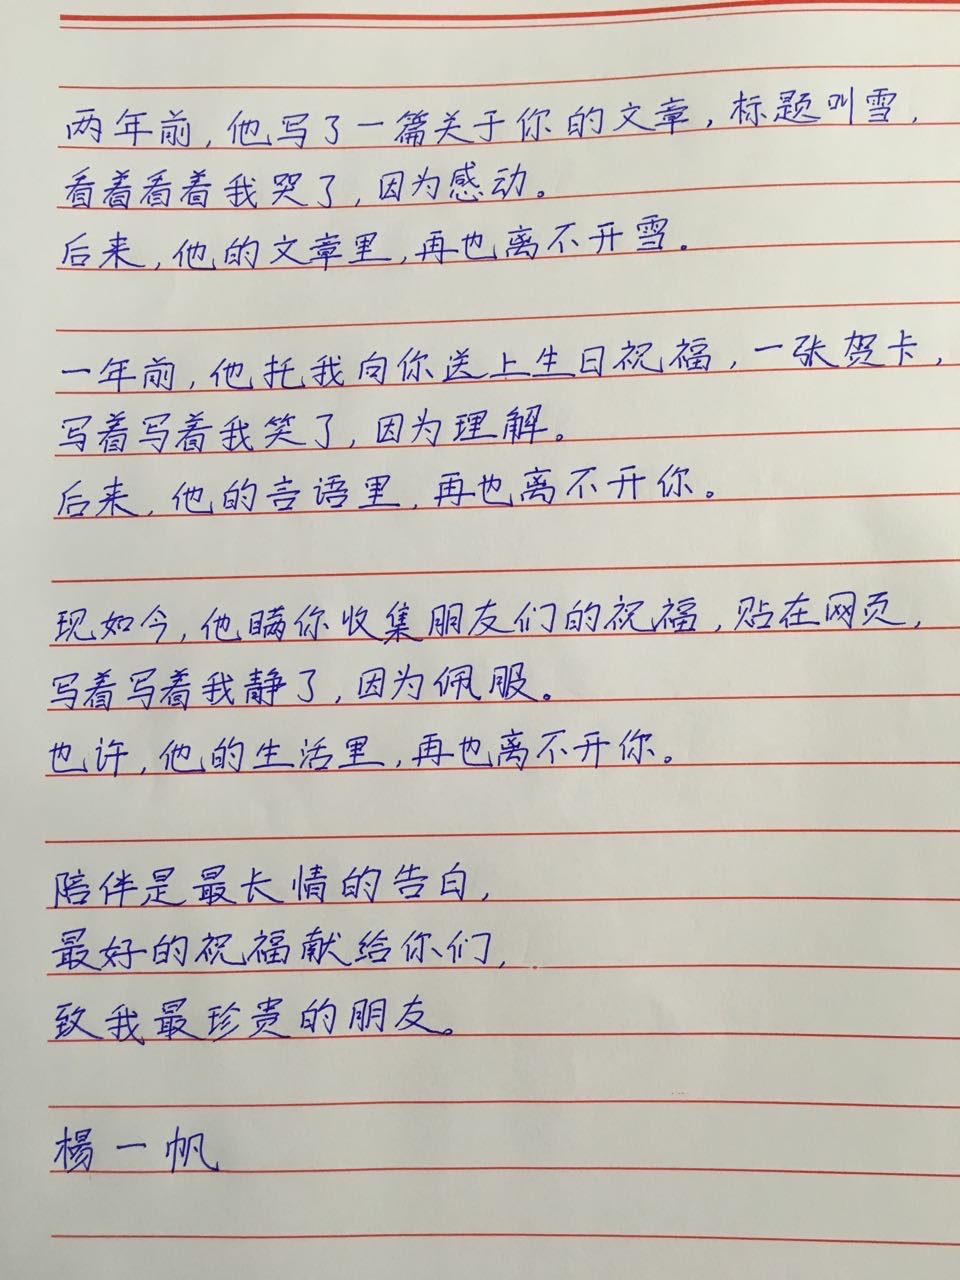 两年前，他写了一篇关于你的文章，标题叫雪，
看着看着我哭了，因为感动。
后来，他的文章里，再也离不开雪。
一年前，他托我向你送上生日祝福，一张贺卡，
写着写着我笑了，因为理解。
后来，他的言语里，再也离不开你。
现如今，他瞒你收集朋友们的祝福，贴在网页，
写着写着我静了，因为佩服。
也许，他的生活里，再也离不开你。
陪伴是最长情的告白，
最好的祝福献给你们，
致我最珍贵的朋友。
楊一帆